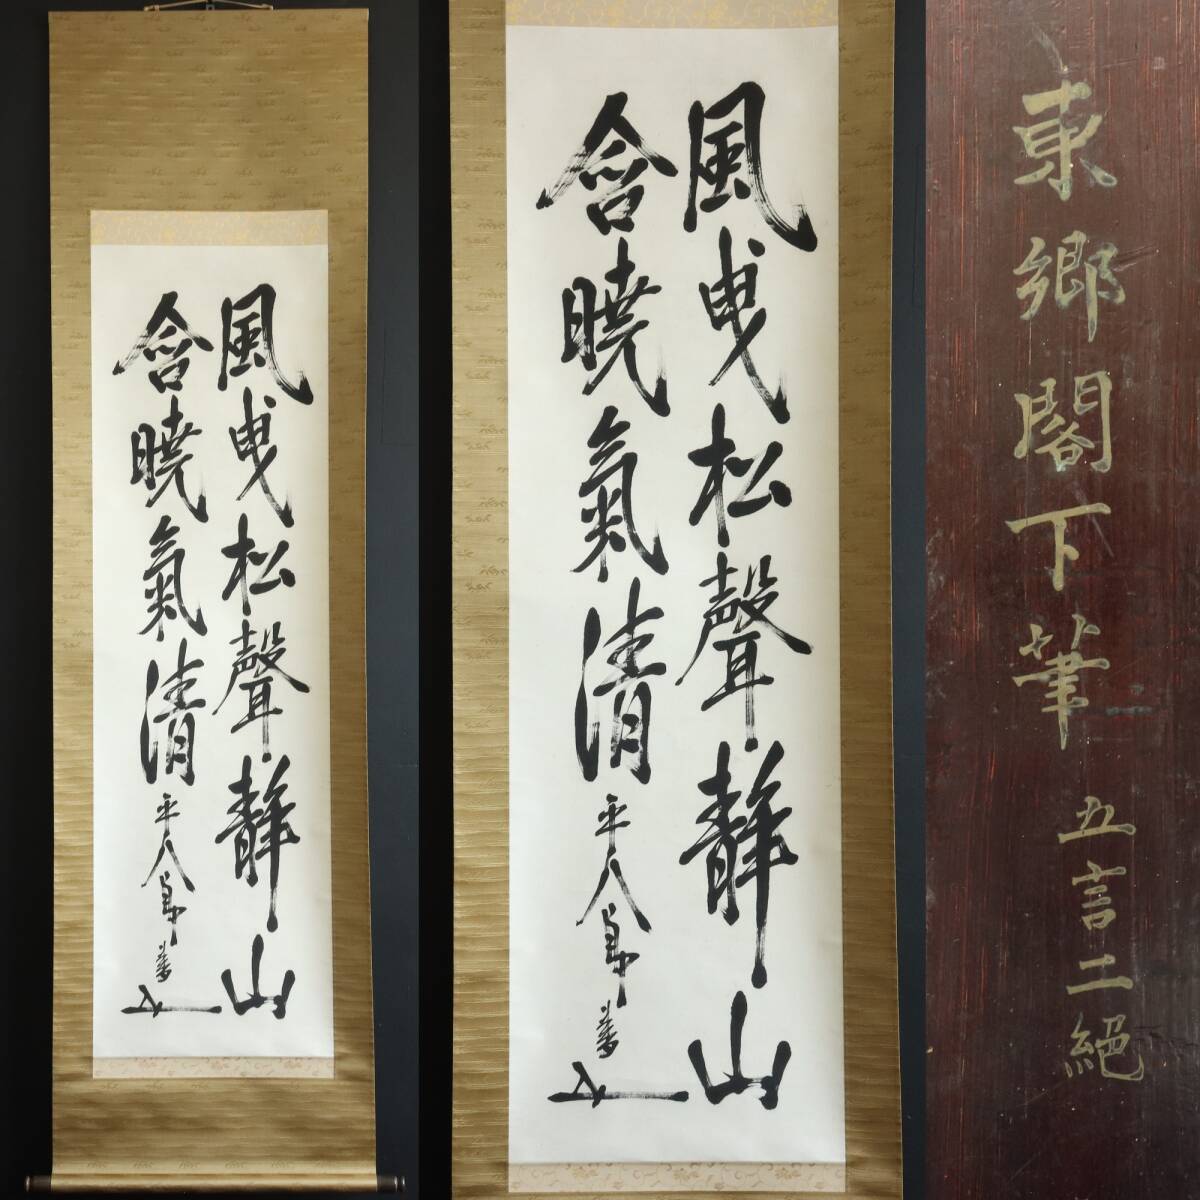 風曳松聲靜山
含曉氣清
平八郎書
風曳松聲靜山
含曉氣清
平八郎書
東郷閣下筆
五言二絕